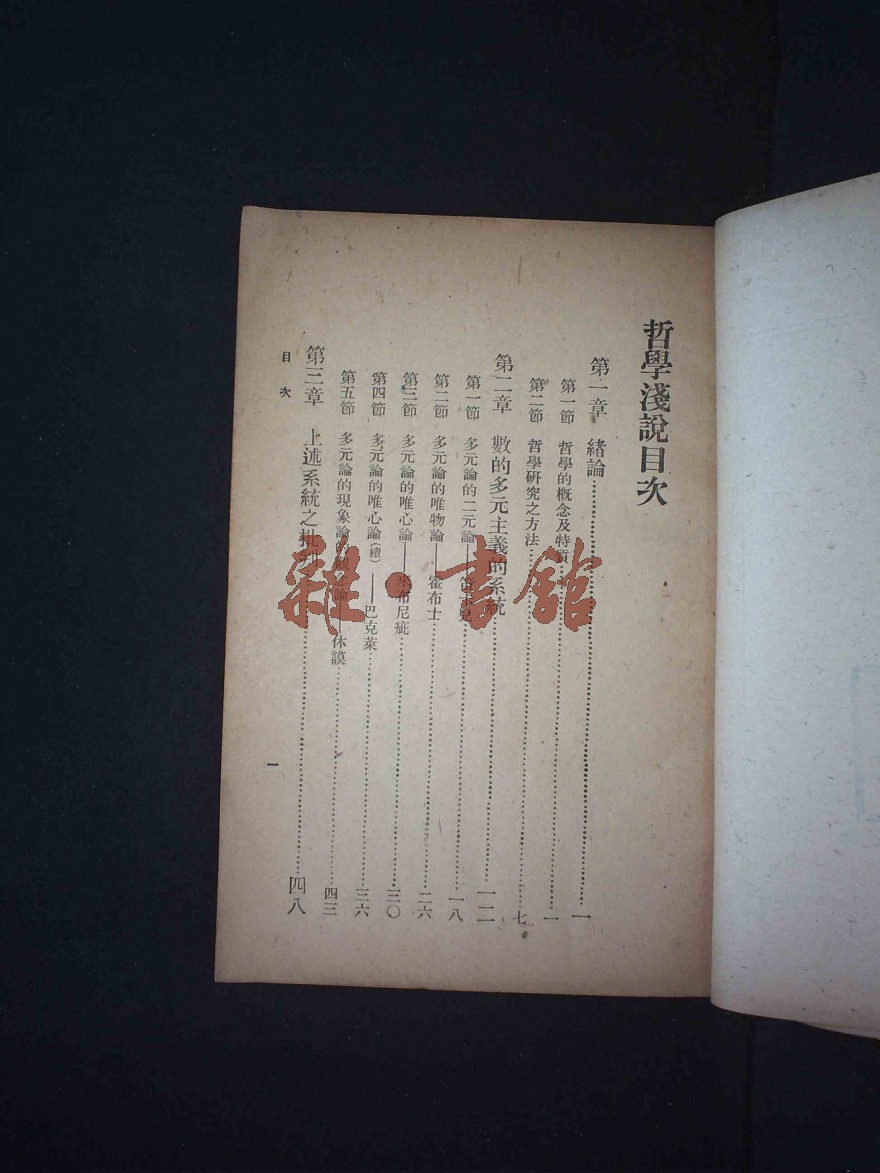 哲學淺說目次
第一章　緒論……一
第一節　哲學的概念及特質……一
第二節　哲學研究之方法……七
第二章　數的多元主義的系統……一二
第一節　多元論的二元論——笛卡兒……一八
第二節　多元論的唯物論——霍布士……二六
第三節　多元論的唯心論——萊布尼疵……三〇
第四節　多元論的唯心論(續)——巴克萊……三六
第五節　多元論的現象論的觀念論——休謨……四三
第三章　上述系統之批判……四八
目次
一
雜·書館